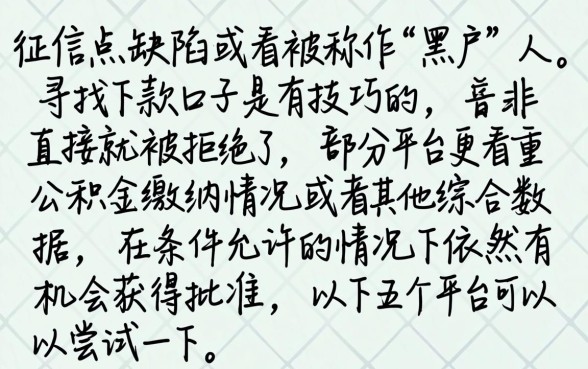 征信点缺陷或看被称作“黑户”人。
寻找下款口子是有技巧的，普非
直接就被拒绝了，部分平台更看重
公积金缴纳情况或者其他综合数
据，在条件允许的情况下依然有
机会获得批准，以下五个平台可以
以尝试一下。